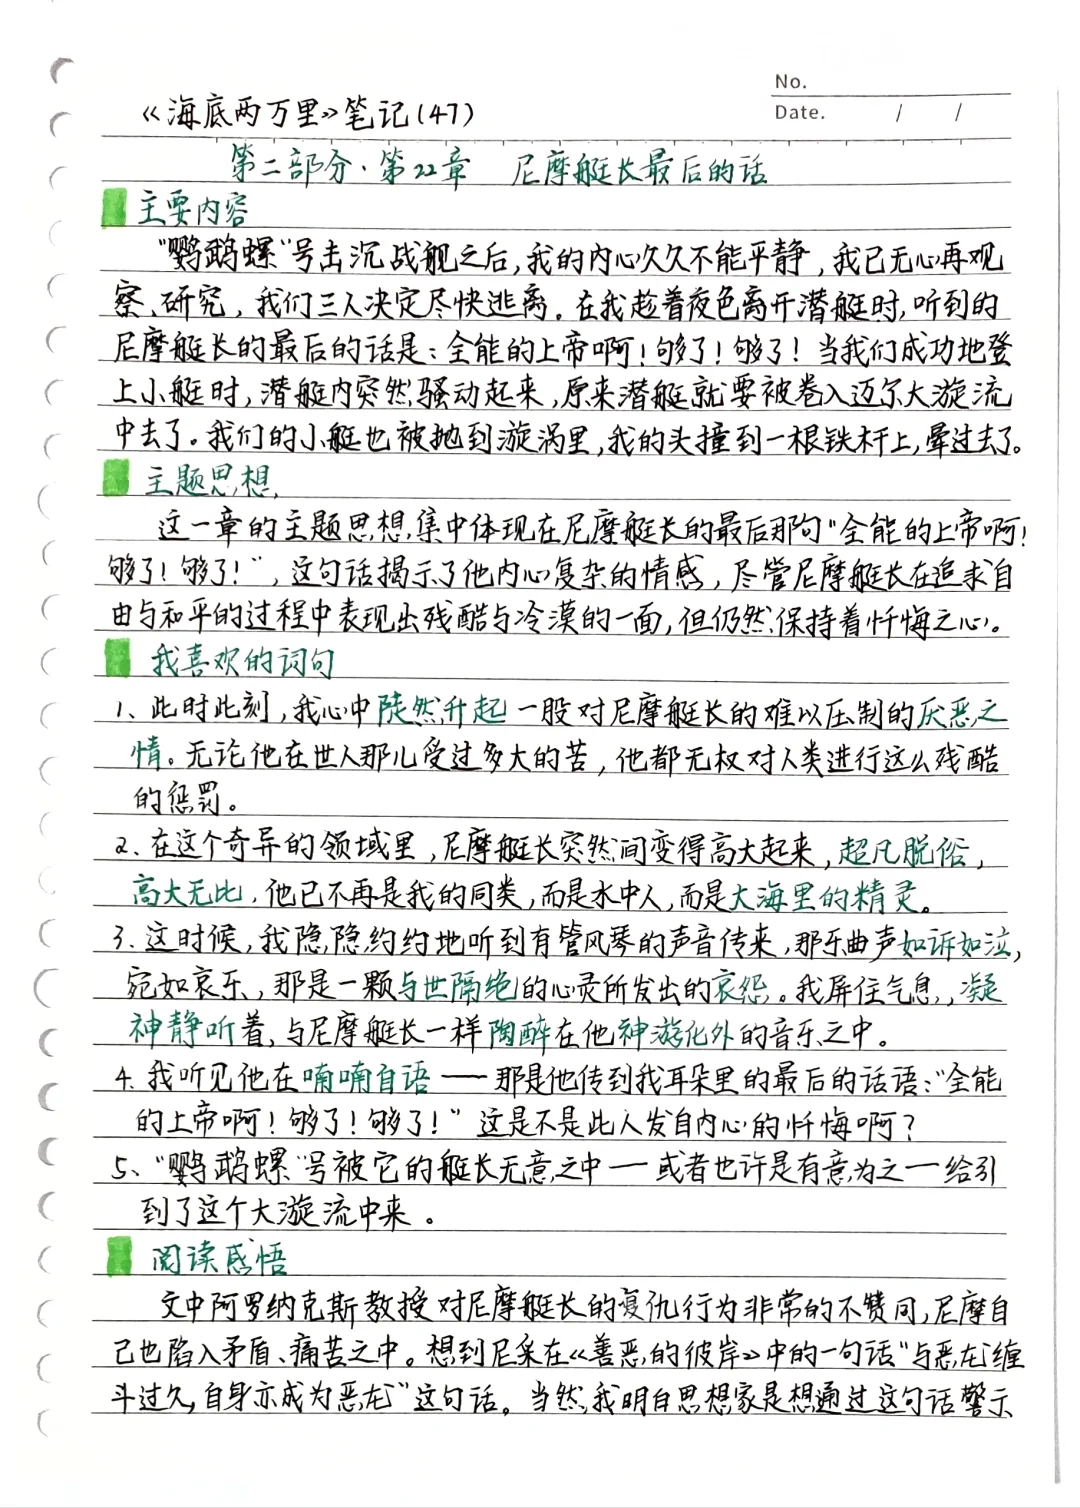 No.
《海底两万里》笔记(47)
Date. / /
第二部分·第22章 尼摩艇长最后的话
主要内容
"鹦鹉螺"号击沉战舰之后,我的内心久久不能平静,我已无心再观
察、研究,我们三人决定尽快逃离。在我趁着夜色离开潜艇时,听到的
尼摩艇长的最后的话是:全能的上帝啊!够了!够了!当我们成功地登
上小艇时,潜艇内突然骚动起来,原来潜艇就要被卷入迈尔大漩流
中去了。我们的小艇也被抛到漩涡里,我的头撞到一根铁杆上,晕过去了。
主题思想
这一章的主题思想集中体现在尼摩艇长的最后那句"全能的上帝啊!
够了!够了!",这句话揭示了他内心复杂的情感,尽管尼摩艇长在追求自
由与和平的过程中表现出残酷与冷漠的一面,但仍然保持着忏悔之心。
我喜欢的词句
1、此时此刻,我心中陡然升起一股对尼摩艇长的难以压制的厌恶之
情。无论他在世人那儿受过多大的苦,他都无权对人类进行这么残酷
的惩罚。
2、在这个奇异的领域里,尼摩艇长突然间变得高大起来,超凡脱俗,
高大无比,他已不再是我的同类,而是水中人,而是大海里的精灵。
3、这时候,我隐隐约约地听到有管风琴的声音传来,那乐曲声如诉如泣,
宛如哀乐,那是一颗与世隔绝的心灵所发出的哀怨。我屏住气息,凝
神静听着,与尼摩艇长一样陶醉在他神游化外的音乐之中。
4、我听见他在喃喃自语——那是他传到我耳朵里的最后的话语:"全能
的上帝啊!够了!够了!"这是不是此人发自内心的忏悔啊?
5、"鹦鹉螺"号被它的艇长无意之中—或者也许是有意为之—给引
到了这个大漩流中来。
阅读感悟
文中阿罗纳克斯教授对尼摩艇长的复仇行为非常的不赞同,尼摩自
己也陷入矛盾、痛苦之中。想到尼采在《善恶的彼岸》中的一句话"与恶龙缠
斗过久,自身亦成为恶龙"这句话。当然,我明白思想家是想通过这句话警示